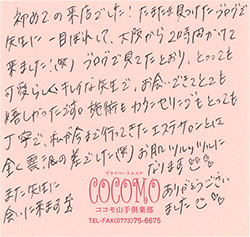 初めての来店でした！たまたま見つけたブログで
先生に一目ぼれして、大阪から2時間かけて
来ました！(笑) ブログで見てたとおり、とっっても
可愛らしくキレイな先生で、お会いできてとても
嬉しかったです。施術もカウンセリングもとっても
丁寧で、私が今まで行ってきたエステサロンとは
全く雲泥の差でした(笑) お肌ツルッツルに
なります
また先生に
会いに来ます
ありがとうござい
ました
プライベートエステ
COCOMO
ココモ山手倶楽部
TEL・FAX(0773)75-6675